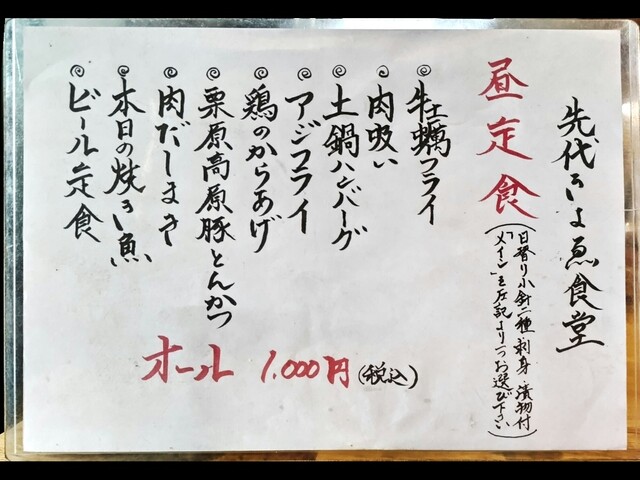 先代きよゑ食堂
昼定食
(日替り小鉢二種 刺身・漬物付
「メイン」を左記より一つお選び下さい)
◎牡蠣フライ
◎肉吸い
◎土鍋ハンバーグ
◎アジフライ
◎鶏のからあげ
◎栗原高原豚とんかつ
◎肉だしまき
◎本日の焼き魚
◎ビール定食
オール 1.000円(税込)